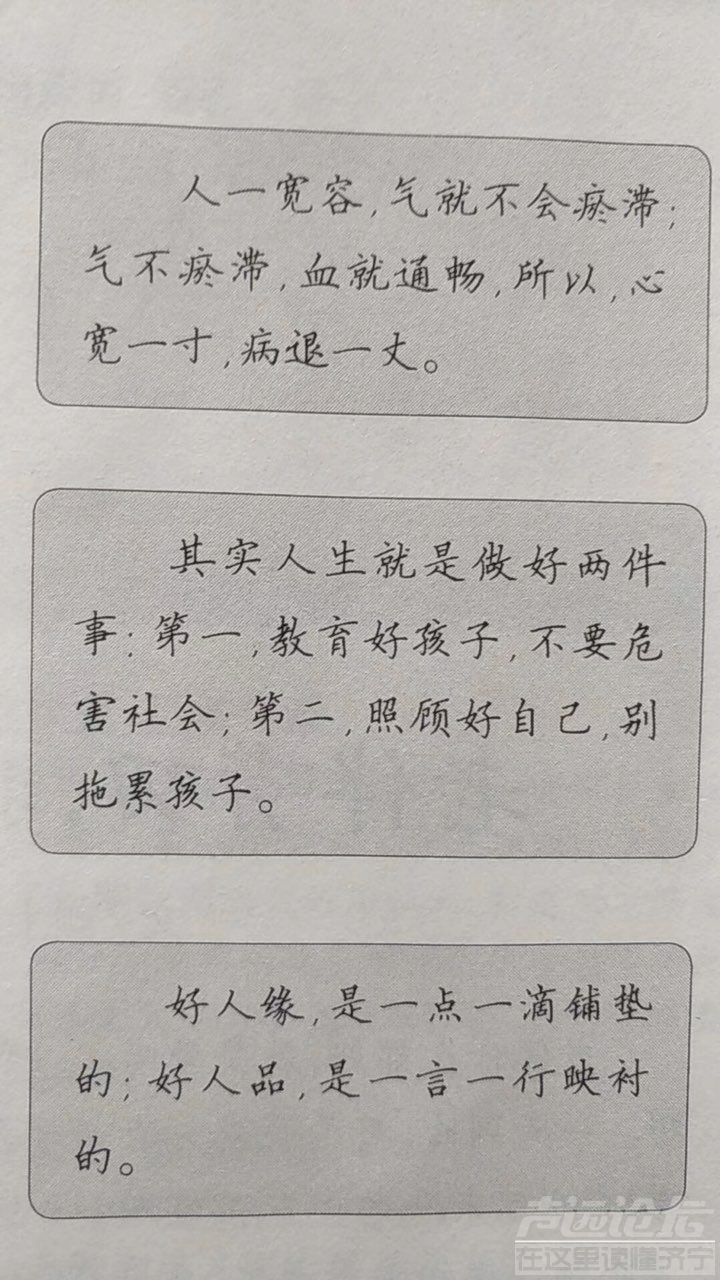 人一宽容,气就不会瘀滞;
气不瘀滞,血就通畅,所以,心
宽一寸,病退一丈。
其实人生就是做好两件
事:第一,教育好孩子,不要危
害社会;第二,照顾好自己,别
拖累孩子。
好人缘,是一点一滴铺垫
的;好人品,是一言一行映衬
的。
声远论坛
在这里读懂济宁